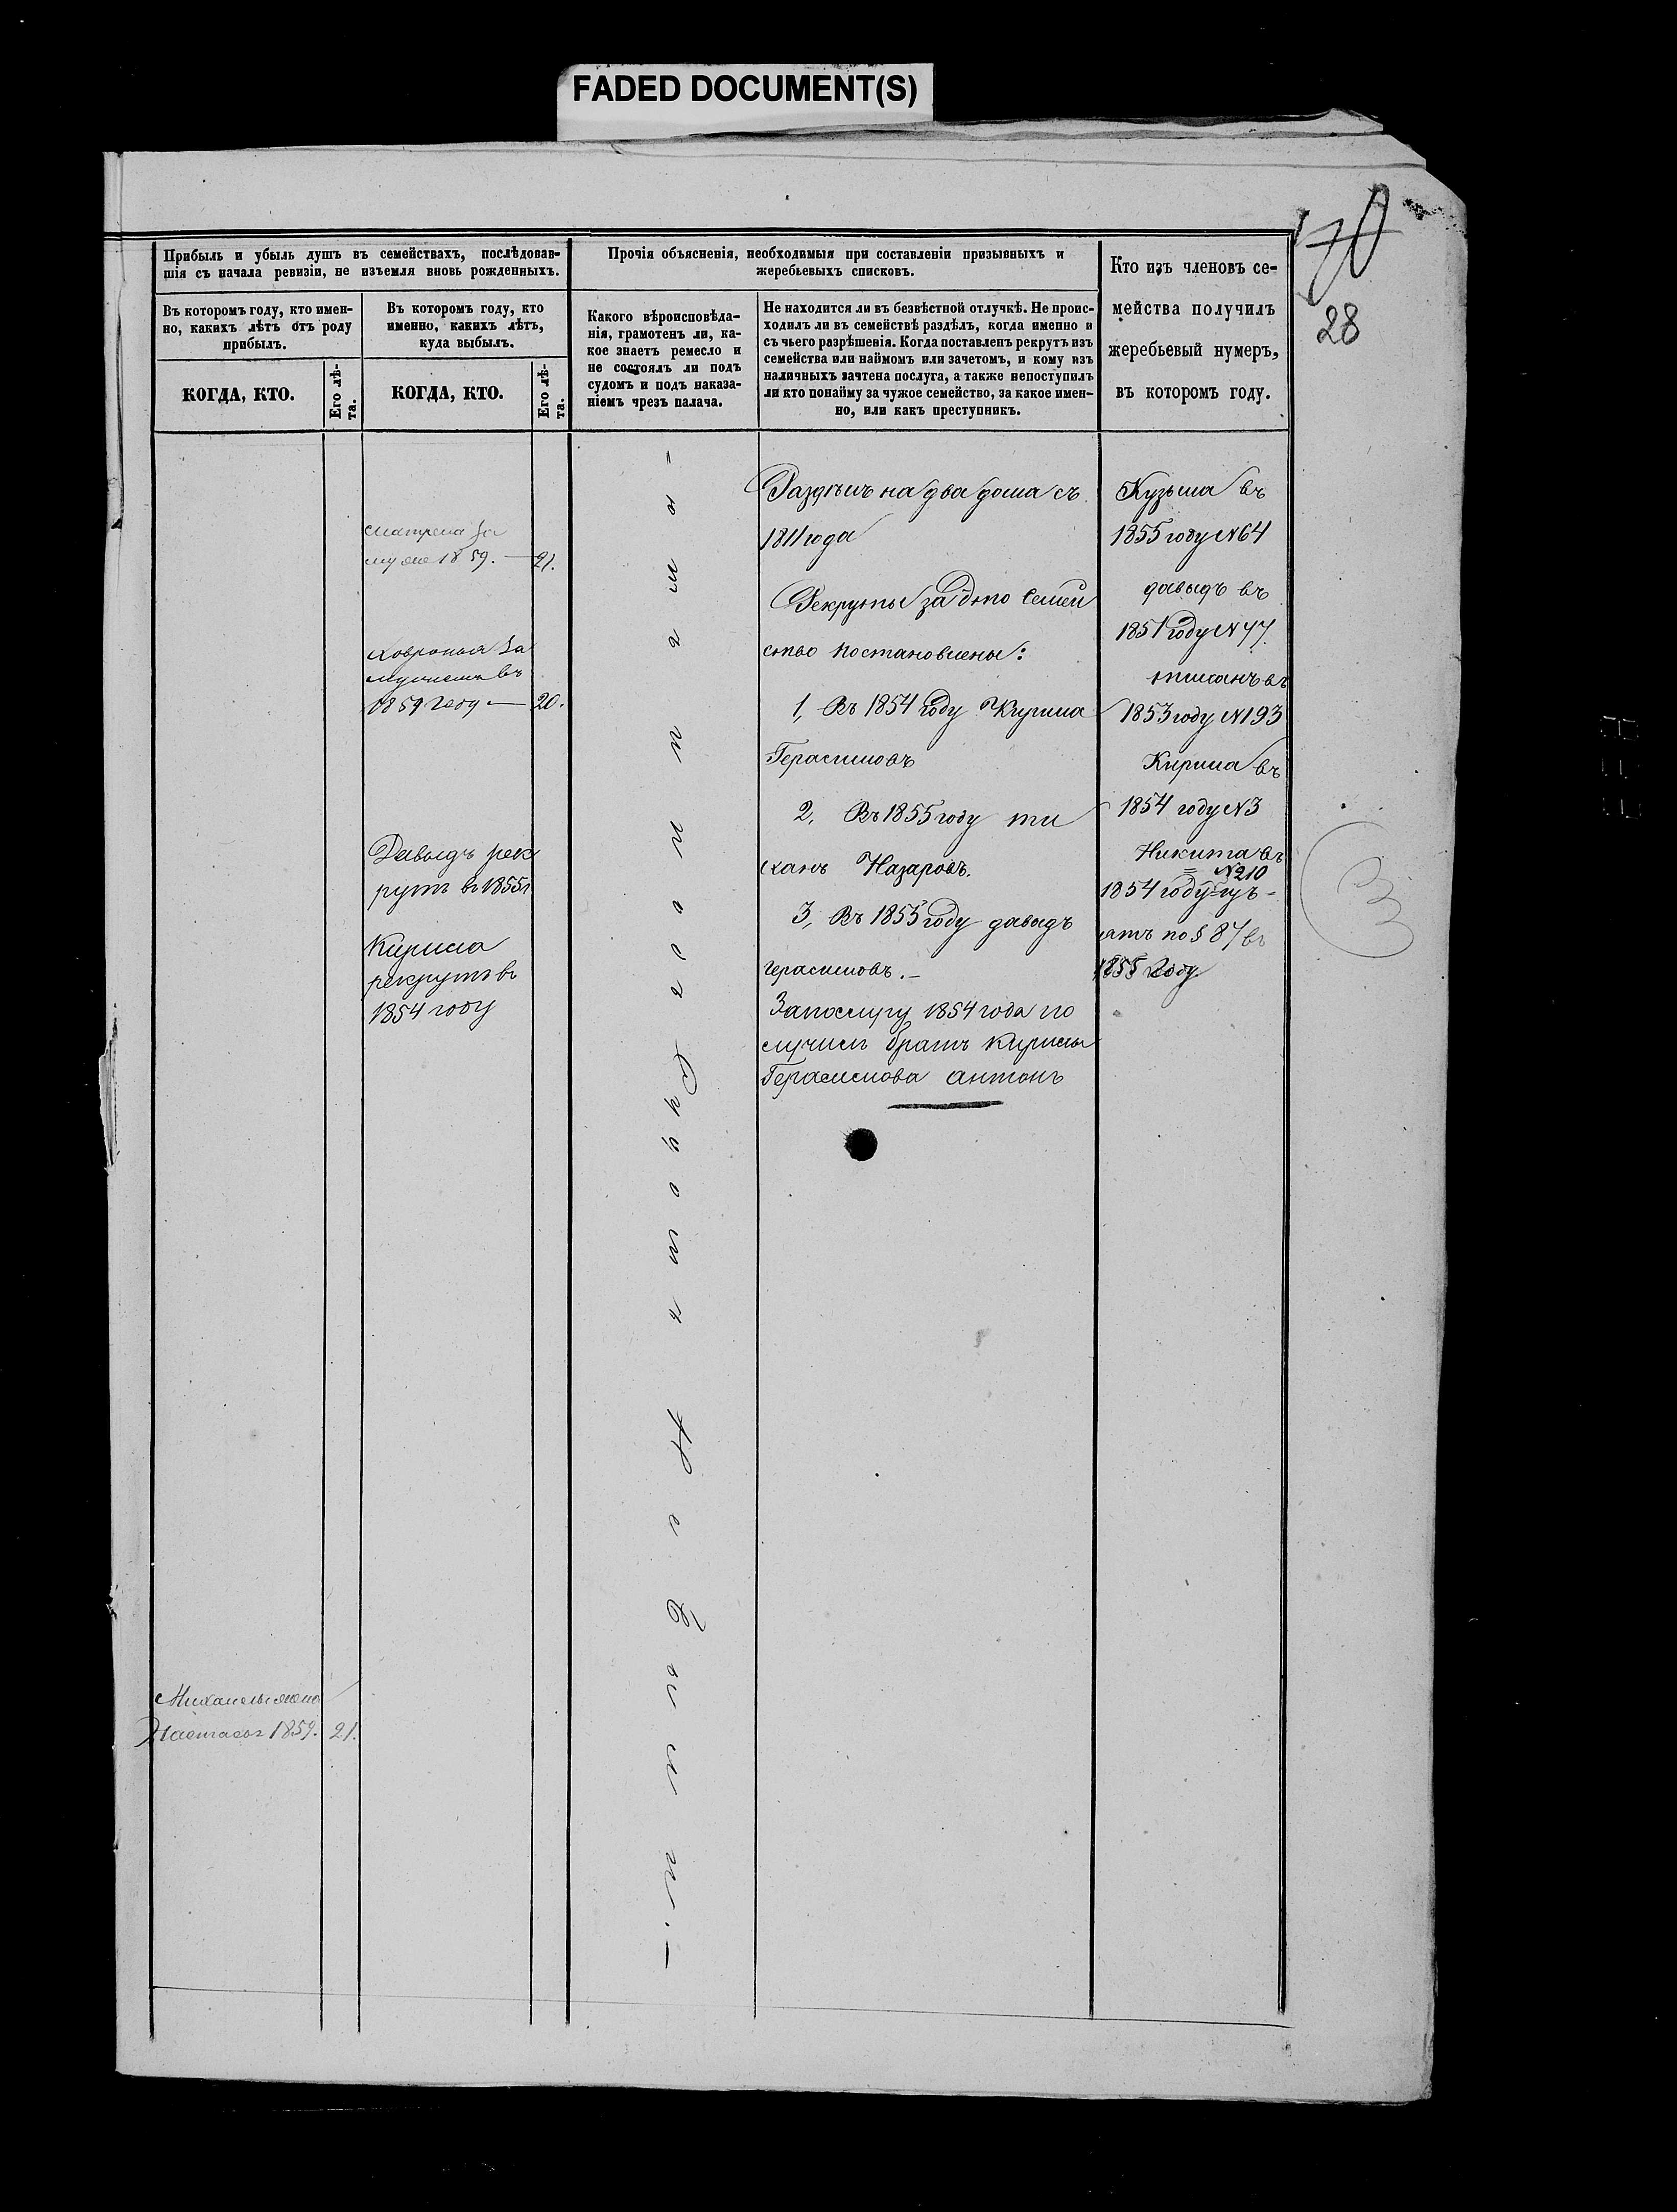 FADED DOCUMENT(S)
28
Прибыль и убыль душъ въ семействахъ, послѣдовав-
шія съ начала ревизіи, не изъемля вновь рожденныхъ.
Въ которомъ году, кто имен-
но, какихъ лѣтъ отъ роду
прибылъ.
Въ которомъ году, кто
именно, какихъ лѣтъ,
куда выбылъ.
КОГДА, КТО.
Его лѣ-
та.
КОГДА, КТО.
Его лѣ-
та.
Прочія объясненія, необходимыя при составленіи призывныхъ и
жеребьевыхъ списковъ.
Какого вѣроисповѣда-
нія, грамотенъ ли, ка-
кое знаетъ ремесло и
не состоялъ ли подъ
судомъ и подъ наказа-
ніемъ чрезъ палача.
Не находится ли въ безвѣстной отлучкѣ. Не проис-
ходилъ ли въ семействѣ раздѣлъ, когда именно и
съ чьего разрѣшенія. Когда поставленъ рекрутъ изъ
семейства или наймомъ или зачетомъ, и кому изъ
наличныхъ зачтена послуга, а также непоступилъ
ли кто понайму за чужое семейство, за какое имен-
но, или какъ преступникъ.
Кто изъ членовъ се-
мейства получилъ
жеребьевый нумеръ,
въ которомъ году.
матрена за
муже 1859. — 21.
ховронья за
мужемъ въ
1859 году — 20.
Давыдъ рек
рутъ въ 1855г
Кирила
рекрутъ въ
1854 году
Михаилы жена
Настасья 1859. 21.
Раздѣлъ на два дома съ
1811 года
Рекруты за это семей
ство постановлены:
1, Въ 1854 году Кирила
Герасимовъ
2, Въ 1855 году ти
ханъ Назаровъ.
3, Въ 1855 году давыдъ
герасимовъ. —
Запослугу 1854 года по
лучилъ братъ Кирилы
Герасимова антонъ
Кузьма въ
1855 году №64
давыдъ въ
1851 году №77.
тиханъ въ
1853 году №193
Кирила въ
1854 году №3
Никита въ
№210
1854 году
ятъ по § 87 въ
1855 году
3